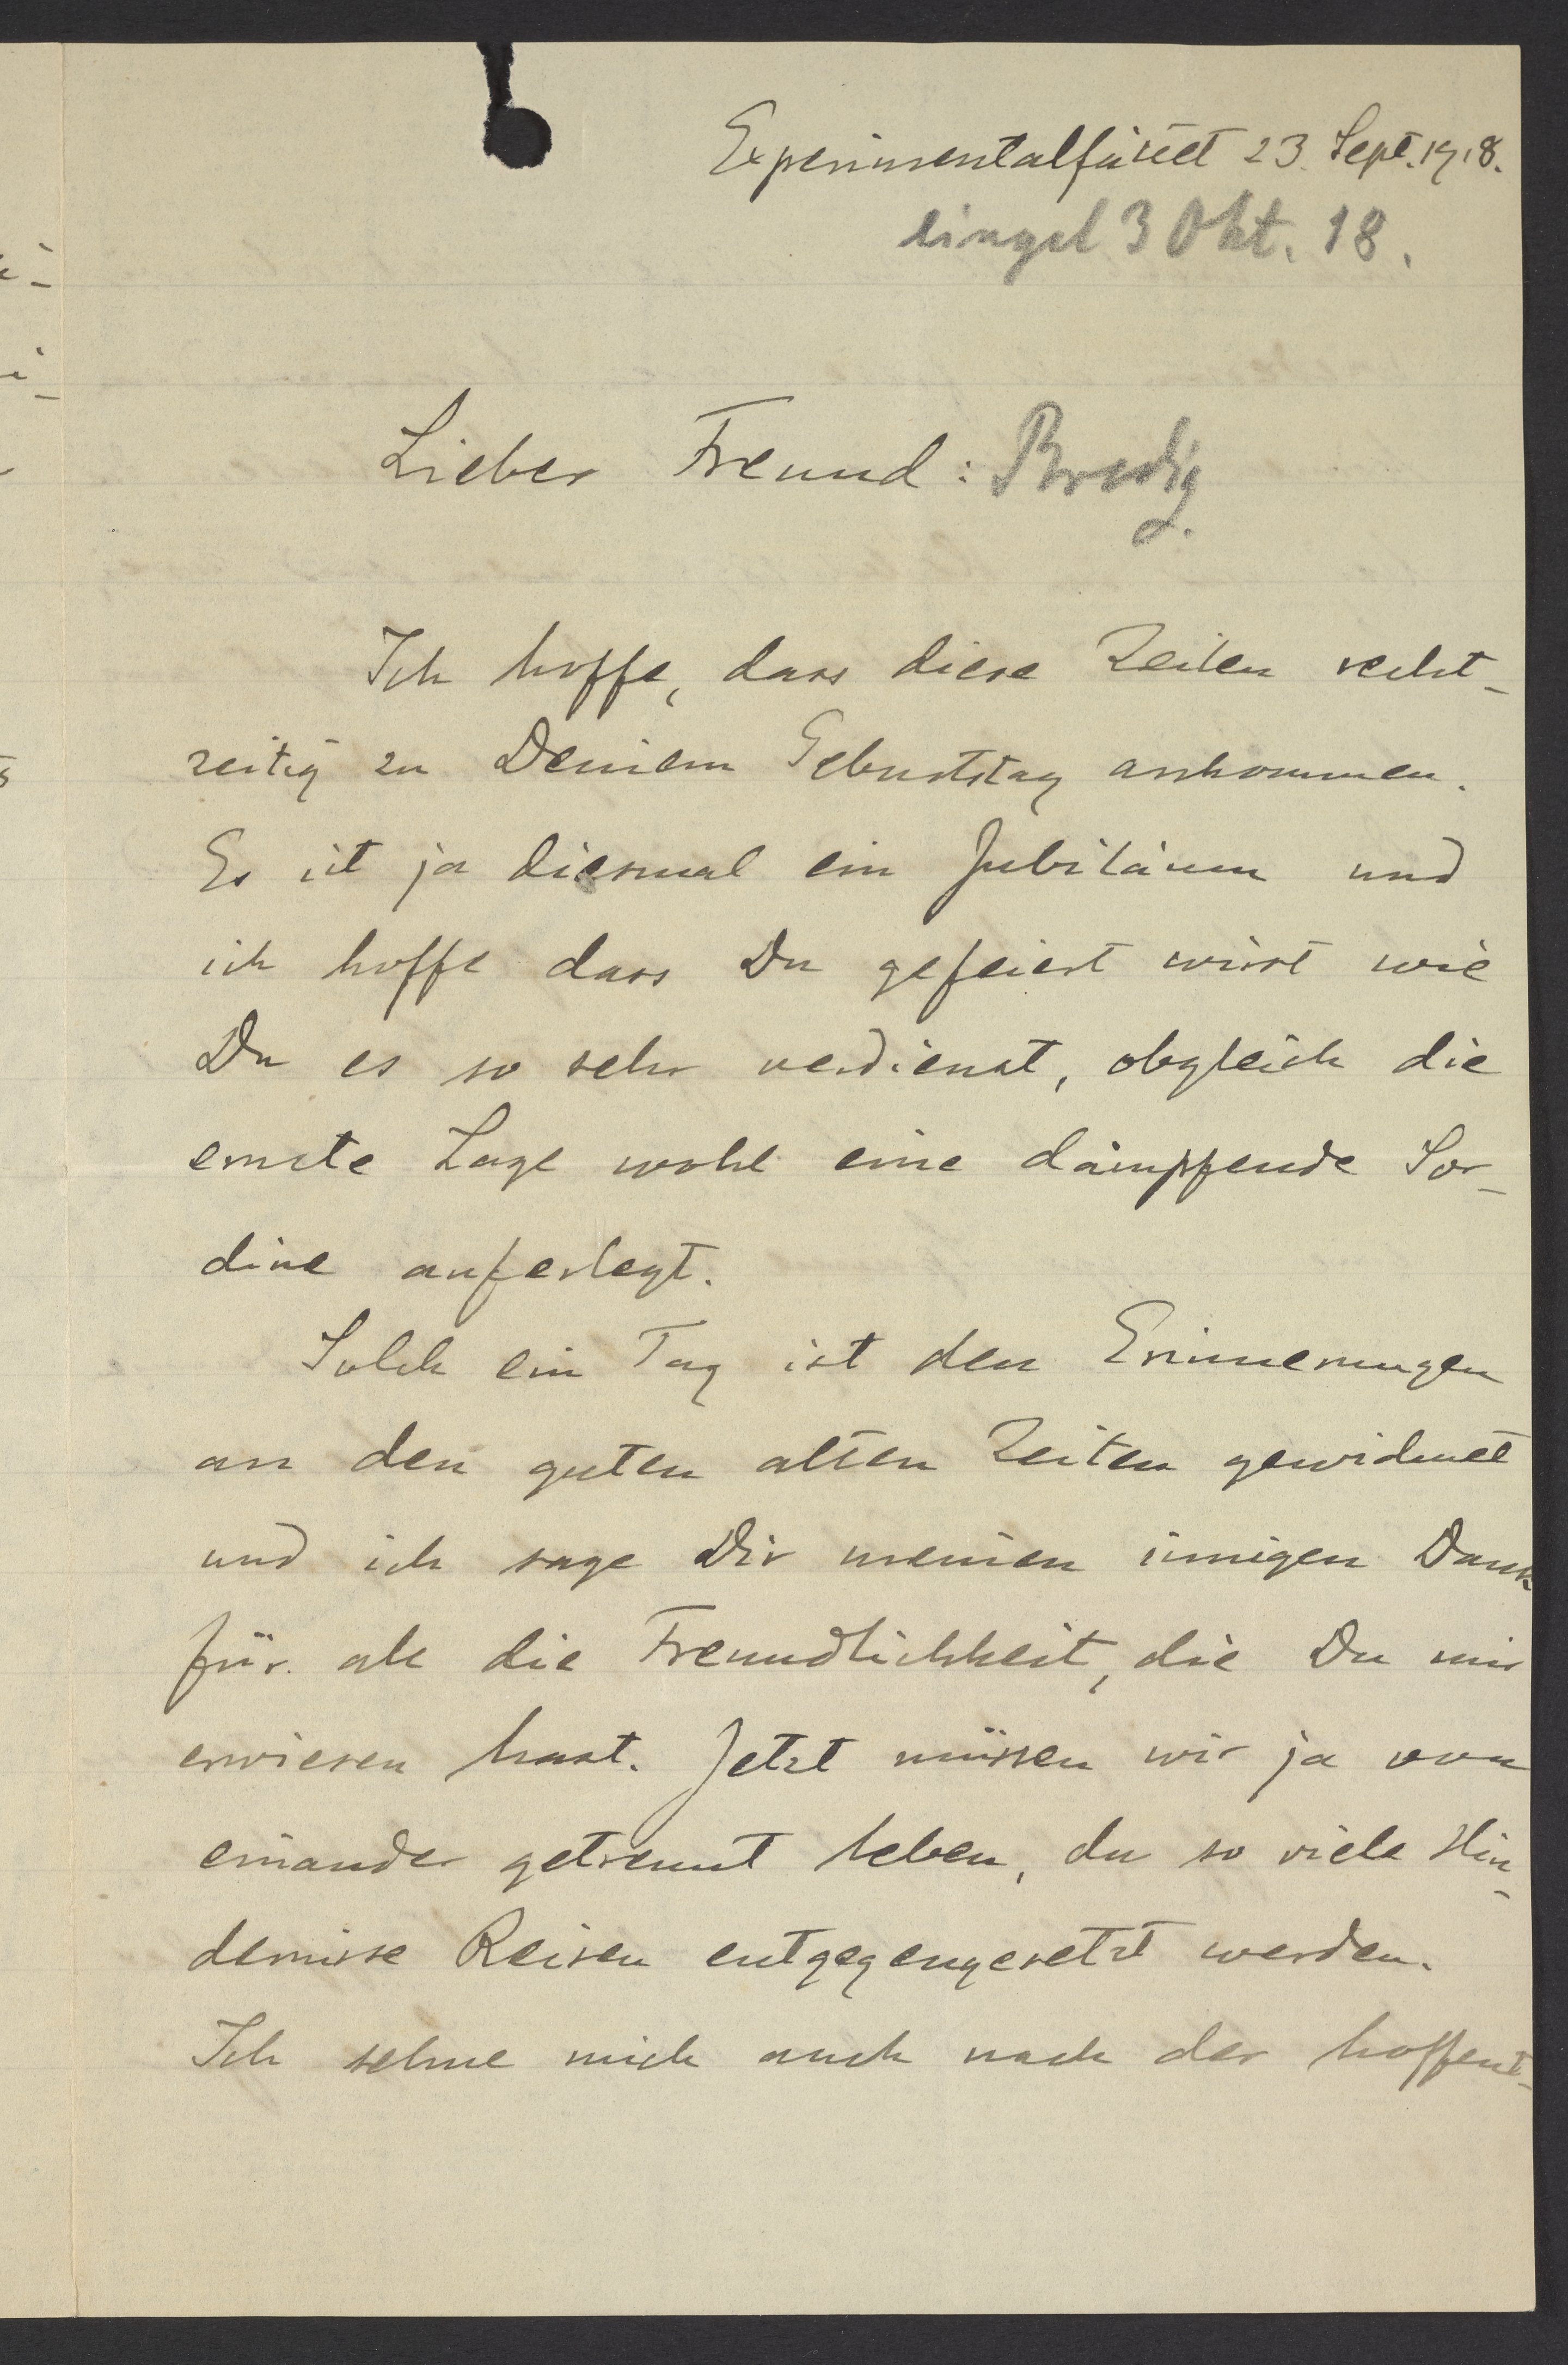 Experimentalfältet 23. Sept. 1918.
eingel 3 Okt. 18.
Lieber Freund: Bredig
Ich hoffe, dass diese Zeilen recht-
zeitig zu Deinem Geburtstag ankommen.
Es ist ja diesmal ein Jubiläum und
ich hoffe dass Du gefeiert wirst wie
Du es so sehr verdienst, obgleich die
ernste Lage wohl eine dämpfende Sor-
dine auferlegt.
Solch ein Tag ist den Erinnerungen
an den guten alten Zeiten gewidmet
und ich sage Dir meinen innigen Dank
für all die Freundlichkeit, die Du mir
erwiesen hast. Jetzt müssen wir ja von
einander getrennt leben, da so viele Hin-
dernisse Reisen entgegengesetzt werden.
Ich sehne mich auch nach der hoffent-